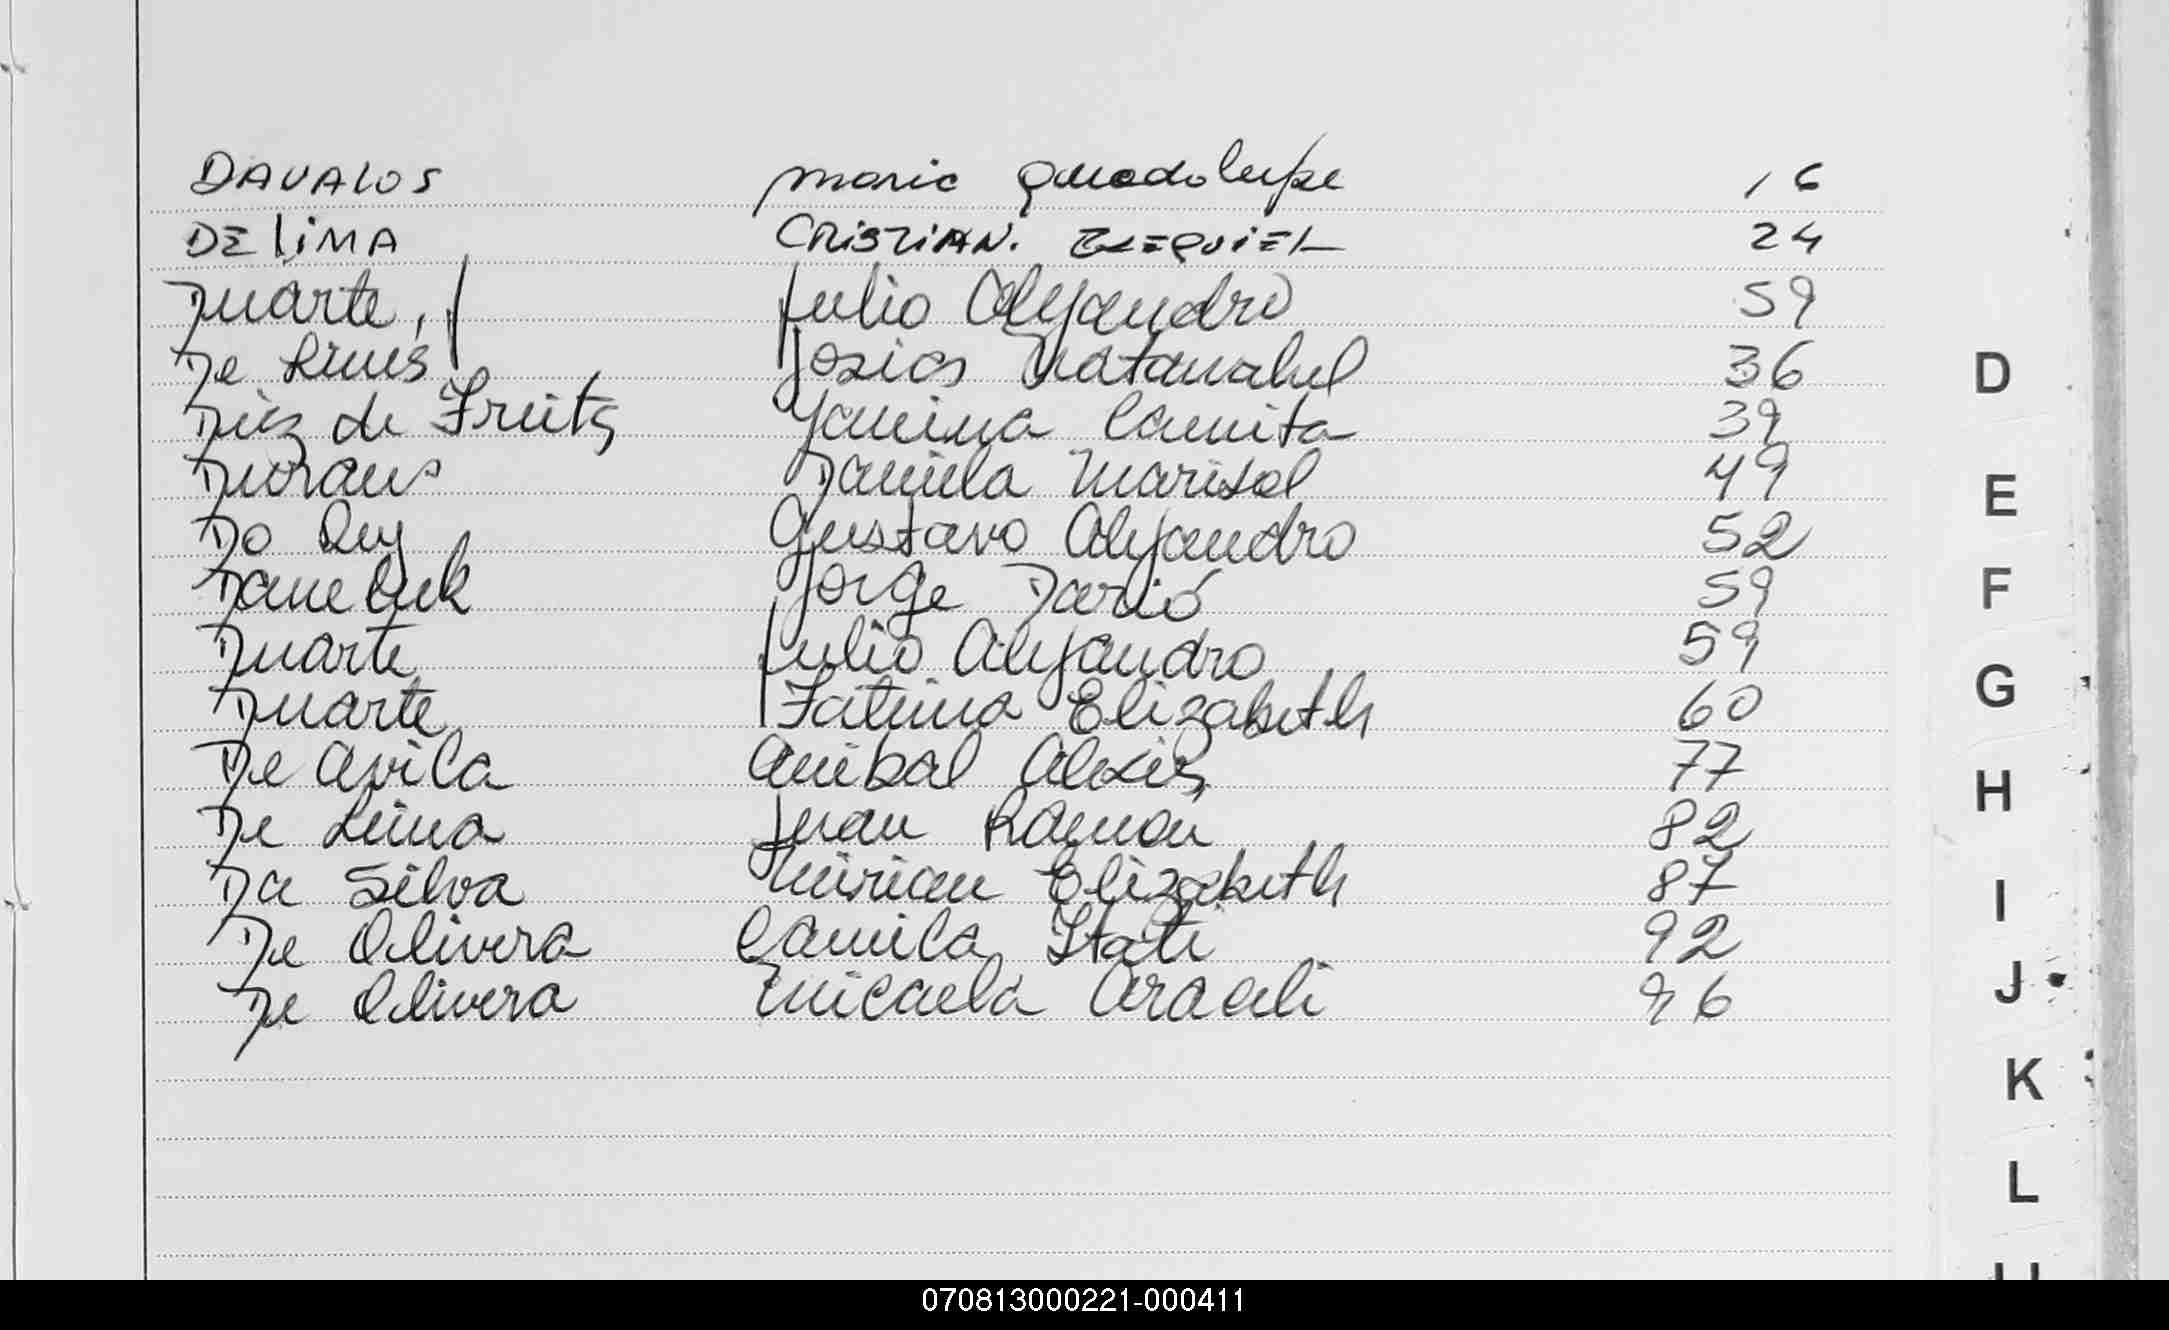 DAVALOS maria guadalupe 16
DE LiMA CRISTIAN. EZEQUIEL 24
Duarte, Julio Alejandro 59
De Lima Josias Natanahel 36
Diez de Freitz Yanina Camita 39
Durans Daniela Marisol 49
Do Rey Gustavo Alejandro 52
Daneluk Jorge Darió 59
Duarte Julio Alejandro 59
Duarte Fatima Elizabeth 60
De Avila Anibal Alexis 77
De Lima Juan Ramon 82
Da Silva Mirian Elizabeth 87
De Olivera Camila Itati 92
De Olivera Micaela Araceli 96
D
E
F
G
H
I
J
K
L
070813000221-000411